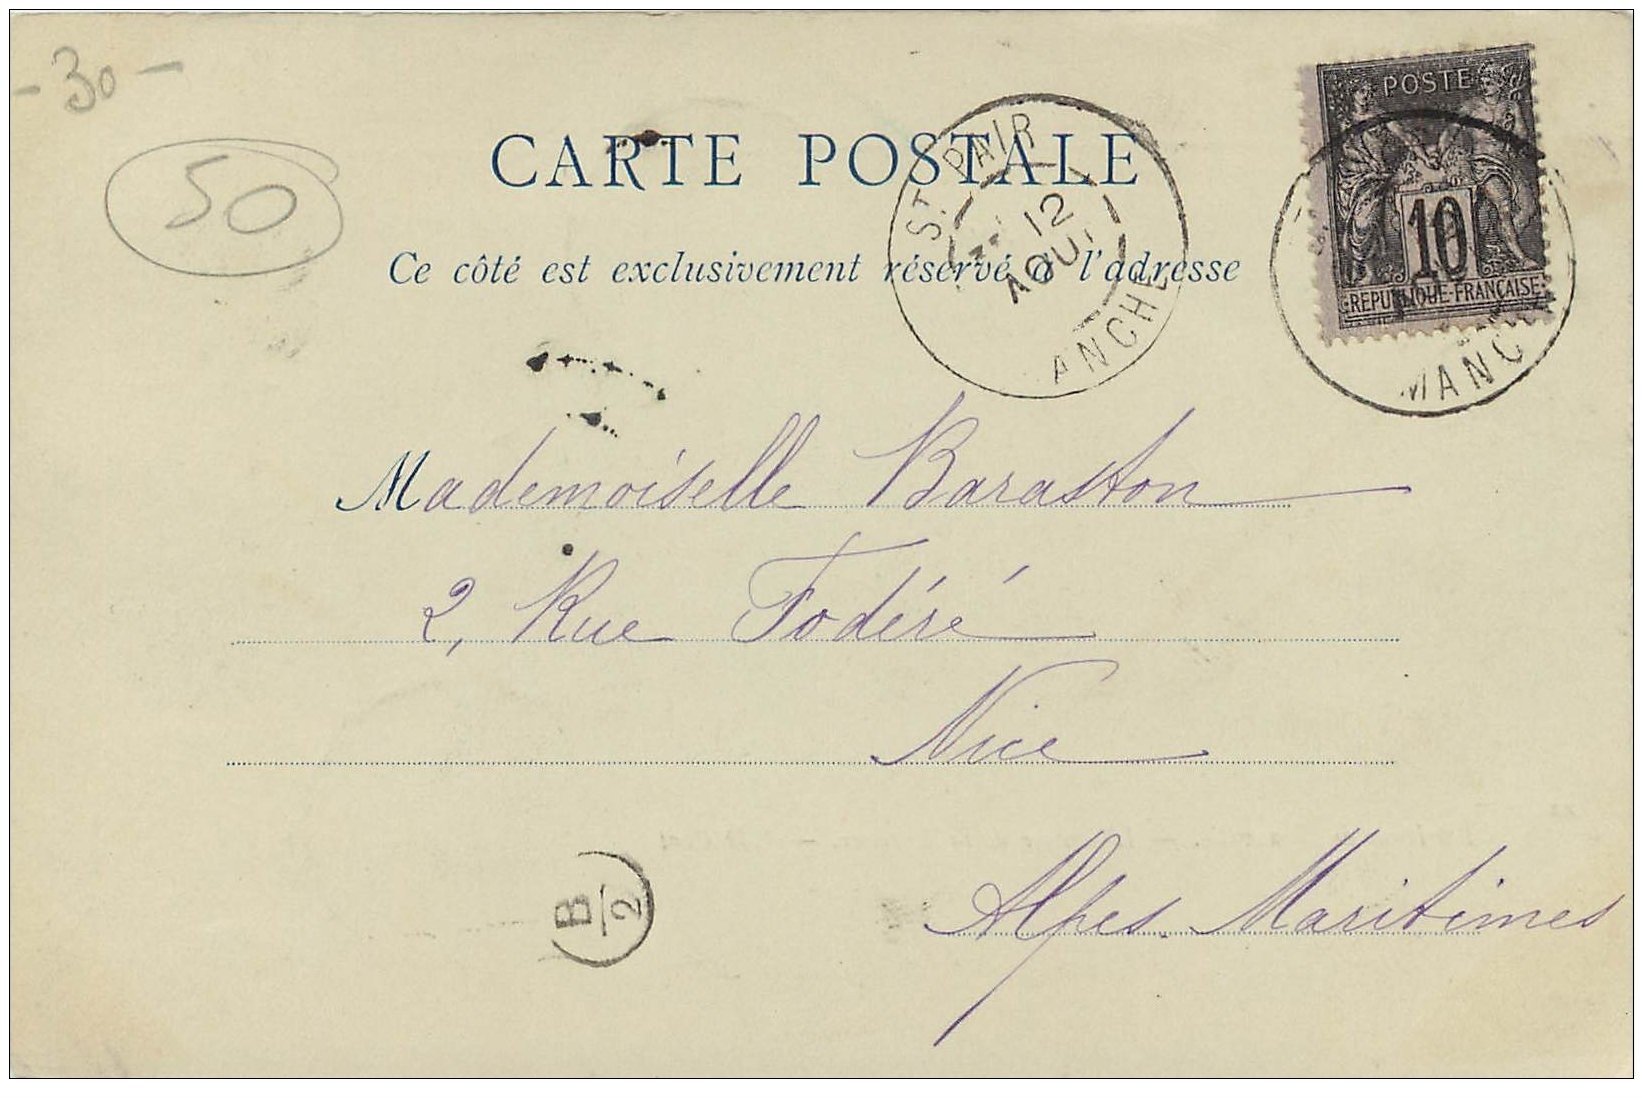 - 30 -
50
CARTE POSTALE
Ce côté est exclusivement réservé à l'adresse
ST PAIR
12
AOU
ANCHE
POSTE
10
REPUBLIQUE FRANÇAISE
MANC
Mademoiselle Baraston
2, Rue Fodéré
Nice
Alpes-Maritimes
B
2